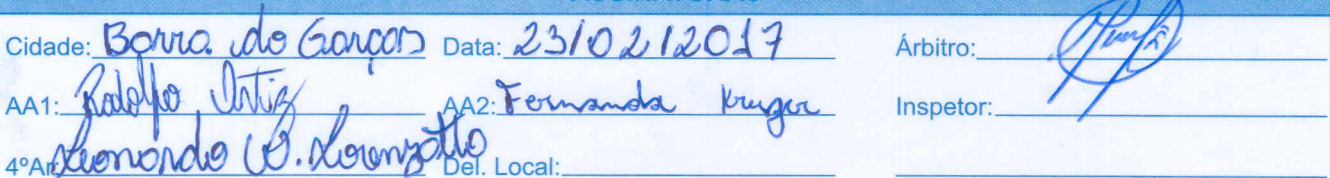 Cidade: Barra do Garças Data: 23/02/2017 Árbitro:
AA1: Rodolpho Ortiz AA2: Fernanda Kruger Inspetor:
4ºAr Leonardo Lorenzatto Del. Local: